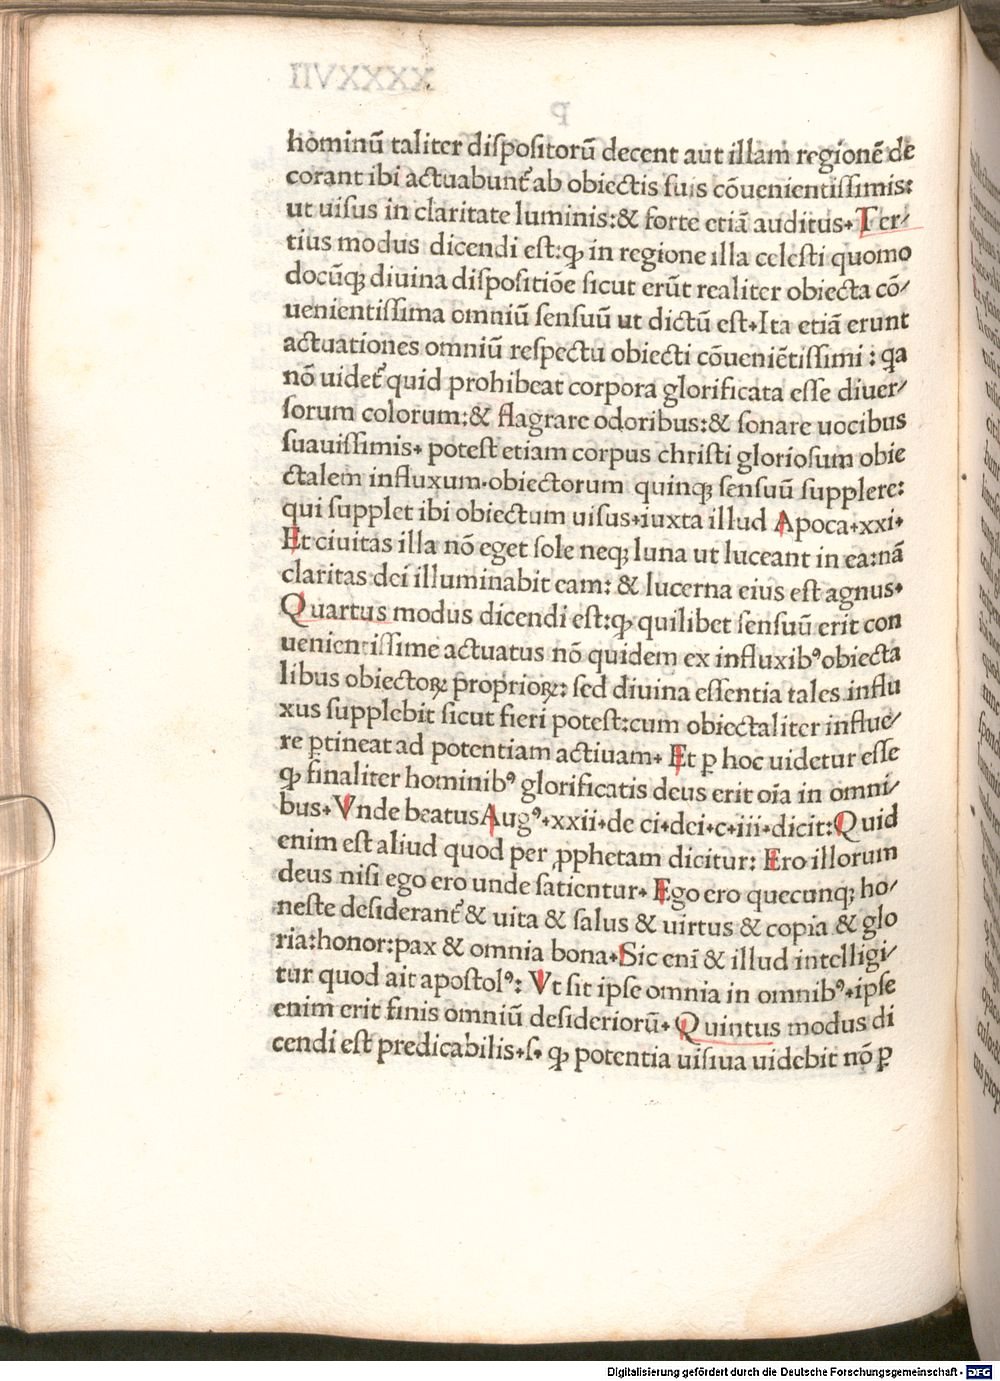 hominū taliter diſpoſitorū decent aut illam regionē de
corant ibi actuabunt᷑ ab obiectis ſuis cōuenientiſſimis:
ut uiſus in claritate luminis:& forte etiā auditus. Ter/
tius modus dicendi eſt:ꝙ in regione illa celeſti quomo
docūqꝫ diuina diſpoſitiōe ſicut erūt realiter obiecta cō/
uenientiſſima omniū ſenſuū ut dictū eſt.Ita etiā erunt
actuationes omniū reſpectu obiecti cōueniētiſſimi : qa
nō uidet᷑ quid prohibeat corpora glorificata eſſe diuer/
ſorum colorum:& flagrare odoribus:& ſonare uocibus
ſuauiſſimis. poteſt etiam corpus chriſti glorioſum obie
ctalem influxum.obiectorum quinqꝫ ſenſuū ſupplere:
qui ſupplet ibi obiectum uiſus.iuxta illud Apoca.xxi.
Et ciuitas illa nō eget ſole neqꝫ luna ut luceant in ea:nā
claritas dei illuminabit eam: & lucerna eius eſt agnus.
Quartus modus dicendi eſt:ꝙ quilibet ſenſuū erit con
uenientiſſime actuatus nō quidem ex influxibꝰ obiecta
libus obiectoꝝ proprioꝝ: ſed diuina eſſentia tales influ
xus ſupplebit ſicut fieri poteſt:cum obiectaliter influe/
re ꝑtineat ad potentiam actiuam. Et ꝑ hoc uidetur eſſe
ꝙ finaliter hominibꝰ glorificatis deus erit oīa in omni/
bus. Vnde beatus Augꝰ.xxii.de ci.dei.c.iii.dicit:Quid
enim eſt aliud quod per ꝓphetam dicitur: Ero illorum
deus niſi ego ero unde ſatientur. Ego ero quecunqꝫ ho/
neſte deſiderant᷑ & uita & ſalus & uirtus & copia & glo
ria:honor:pax & omnia bona.Sic enī & illud intelligi/
tur quod ait apoſtolꝰ: Vt ſit ipſe omnia in omnibꝰ.ipſe
enim erit finis omniū deſideriorū. Quintus modus di
cendi eſt predicabilis.ſ. ꝙ potentia uiſiua uidebit nō ꝑ
Digitalisierung gefördert durch die Deutsche Forschungsgemeinschaft - DFG